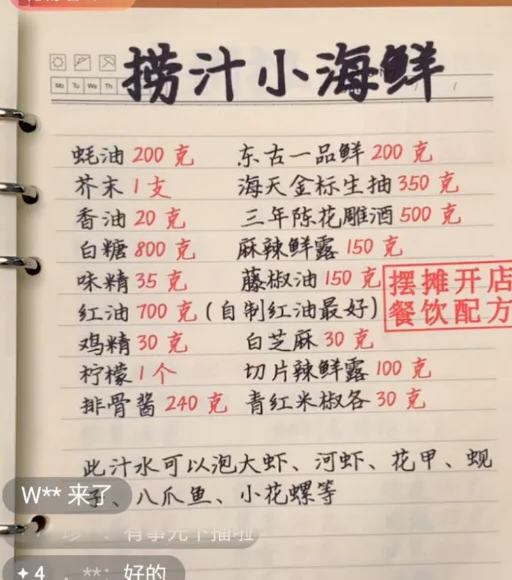 捞汁小海鲜
Mo Tu We Th
蚝油 200 克 东古一品鲜 200 克
芥末 1 支 海天金标生抽 350 克
香油 20 克 三年陈花雕酒 500 克
白糖 800 克 麻辣鲜露 150 克
味精 35 克 藤椒油 150 克
红油 700 克(自制红油最好)
摆摊开店
餐饮配方
鸡精 30 克 白芝麻 30 克
柠檬 1 个 切片辣鲜露 100 克
排骨酱 240 克 青红米椒各 30 克
此汁水可以泡大虾、河虾、花甲、蚬
、八爪鱼、小花螺等
W** 来了
有事先下播啦
4 **: 好的